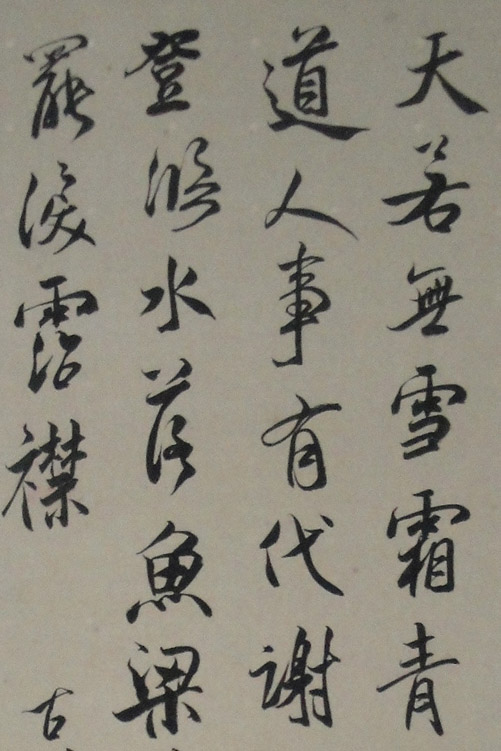 天若無雪霜青
道人事有代謝
登臨水落魚梁
罷淚霑襟
古